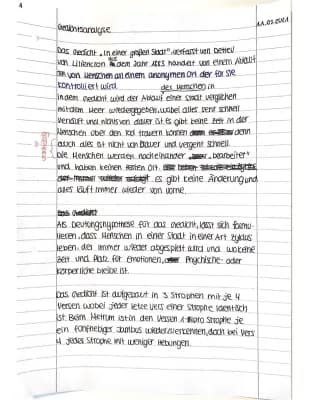 4
11.03.2021
Gedichtsanalyse
Das Gedicht „In einer großen Stadt" verfasst von Detlev
von Liliencron aus dem Jahr 1883 handelt von einem Ablauf
von Menschen an einem anonymen Ort der für sie
kontrolliert wird.
des Menschen in
In dem Gedicht wird der Ablauf einer Stadt verglichen
mit dem Meer wiedergegeben, wobei alles sehr schnell
verläuft und nichts von dauer ist es gibt keine Zeit in der
Menschen über den Tod trauern können denn
auch alles ist nicht von Dauer und vergeht schnell.
Die Menschen werden nacheinander „bearbeitet"
und haben keinen festen Ort.
es gibt keine Änderung und
alles läuft immer wieder von vorne.
Das Gedicht
Als Deutungshypothese für das Gedicht, lässt sich formu-
lieren, dass Menschen in einer Stadt in einer Art Zyklus
leben, der immer wieder abgespielt wird und wo keine
Zeit und Platz für Emotionen, Psychische- oder
körperliche bleibe ist.
Das Gedicht ist aufgebaut in 3 Strophen mit je 4
Versen wobei jeder letze Vers einer Strophe identisch
ist. Beim Metrum ist in den Versen 1-3 pro Strophe je
ein fünfhebiger Jambus wiederzuerkennen, doch bei Vers
4 jedes Strophe mit weniger Hebungen.